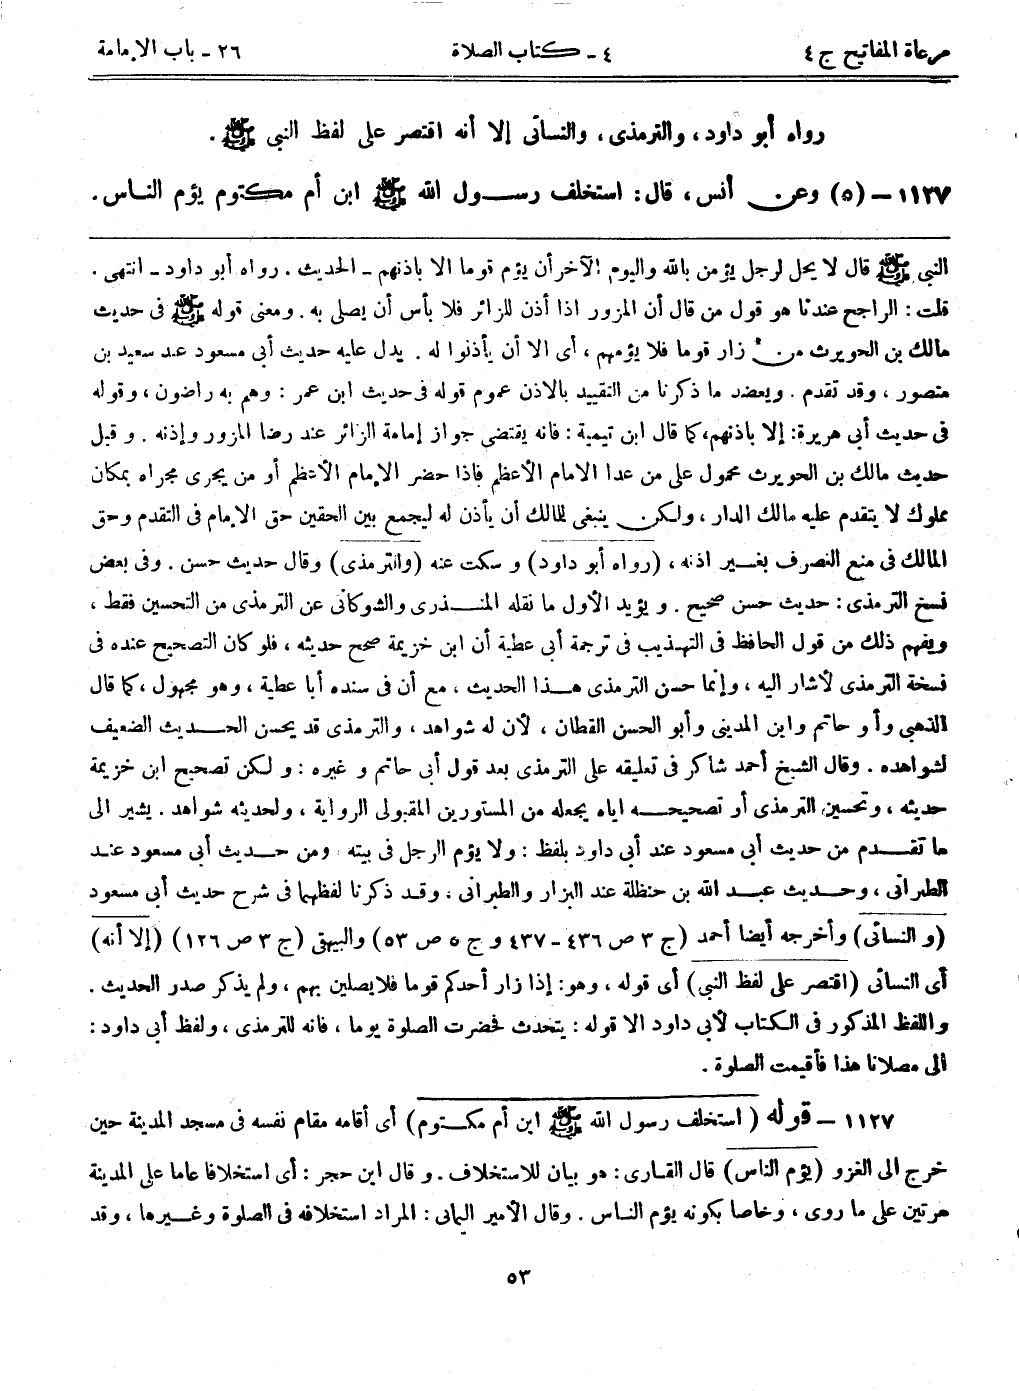 مرعاة المفاتيح ج ٤
٤ - كتاب الصلاة
٢٦ - باب الإمامة
رواه أبو داود، والترمذى، والنسائى إلا أنه اقتصر على لفظ النبى ﷺ.
١١٢٧ - (٥) وعن أنس، قال: استخلف رسول الله ﷺ ابن أم مكتوم يؤم الناس.
النبى ﷺ قال لا يحل لرجل يؤمن بالله واليوم الآخر أن يؤم قوما الا باذنهم - الحديث. رواه أبو داود - انتهى.
قلت: الراجح عندنا هو قول من قال أن المزور اذا أذن للزائر فلا بأس أن يصلى به. ومعنى قوله ﷺ فى حديث
مالك بن الحويرث من زار قوما فلا يؤمهم، أى الا أن يأذنوا له. يدل عليه حديث أبى مسعود عند سعيد بن
منصور، وقد تقدم. ويعضد ما ذكرنا من التقييد بالاذن عموم قوله فى حديث ابن عمر: وهم به راضون، وقوله
فى حديث أبى هريرة: إلا باذنهم، كما قال ابن تيمية: فانه يقتضى جواز إمامة الزائر عند رضا المزور وإذنه. و قيل
حديث مالك بن الحويرث محمول على من عدا الامام الأعظم فاذا حضر الإمام الأعظم أو من يجرى مجراه بمكان
مملوك لا يتقدم عليه مالك الدار، ولكن ينبغى للمالك أن يأذن له ليجمع بين الحقين حق الإمام فى التقدم وحق
المالك فى منع التصرف بغير اذنه، (رواه أبو داود) و سكت عنه (والترمذى) وقال حديث حسن. وفى بعض
نسخ الترمذى: حديث حسن صحيح. و يؤيد الأول ما نقله المنذرى والشوكانى عن الترمذى من التحسين فقط،
ويفهم ذلك من قول الحافظ فى التهذيب فى ترجمة أبى عطية أن ابن خزيمة صحح حديثه، فلو كان التصحيح عنده فى
نسخة الترمذى لأشار اليه، وإنما حسن الترمذى هذا الحديث، مع أن فى سنده أبا عطية، وهو مجهول، كما قال
الذهبى وأبو حاتم وابن المدينى وأبو الحسن القطان، لأن له شواهد، والترمذى قد يحسن الحديث الضعيف
لشواهده. وقال الشيخ أحمد شاكر فى تعليقه على الترمذى بعد قول أبى حاتم و غيره: و لكن تصحيح ابن خزيمة
حديثه، وتحسين الترمذى أو تصحيحه اياه يجعله من المستورين المقبولى الرواية، ولحديثه شواهد. يشير الى
ما تقدم من حديث أبى مسعود عند أبى داود بلفظ: ولا يؤم الرجل فى بيته ومن حديث أبى مسعود عند
الطبرانى، وحديث عبد الله بن حنظلة عند البزار والطبرانى. وقد ذكرنا لفظهما فى شرح حديث أبى مسعود
(و النسائى) وأخرجه أيضا أحمد (ج ٣ ص ٤٣٦ - ٤٣٧ و ج ٥ ص ٥٣) والبيهقى (ج ٣ ص ١٢٦) (إلا أنه)
أى النسائى (اقتصر على لفظ النبى) أى قوله، وهو: إذا زار أحدكم قوما فلا يصلين بهم، ولم يذكر صدر الحديث.
واللفظ المذكور فى الكتاب لأبى داود الا قوله: يتحدث فحضرت الصلوة يوما، فانه للترمذى، ولفظ أبى داود:
الى مصلانا هذا فأقيمت الصلوة.
١١٢٧ - قوله (استخلف رسول الله ﷺ ابن أم مكتوم) أى أقامه مقام نفسه فى مسجد المدينة حين
خرج الى الغزو (يؤم الناس) قال القارى: هو بيان للاستخلاف. و قال ابن حجر: أى استخلافا عاما على المدينة
مرتين على ما روى، وخاصا بكونه يؤم الناس. وقال الأمير اليمانى: المراد استخلافه فى الصلوة وغيرها، وقد
٥٣